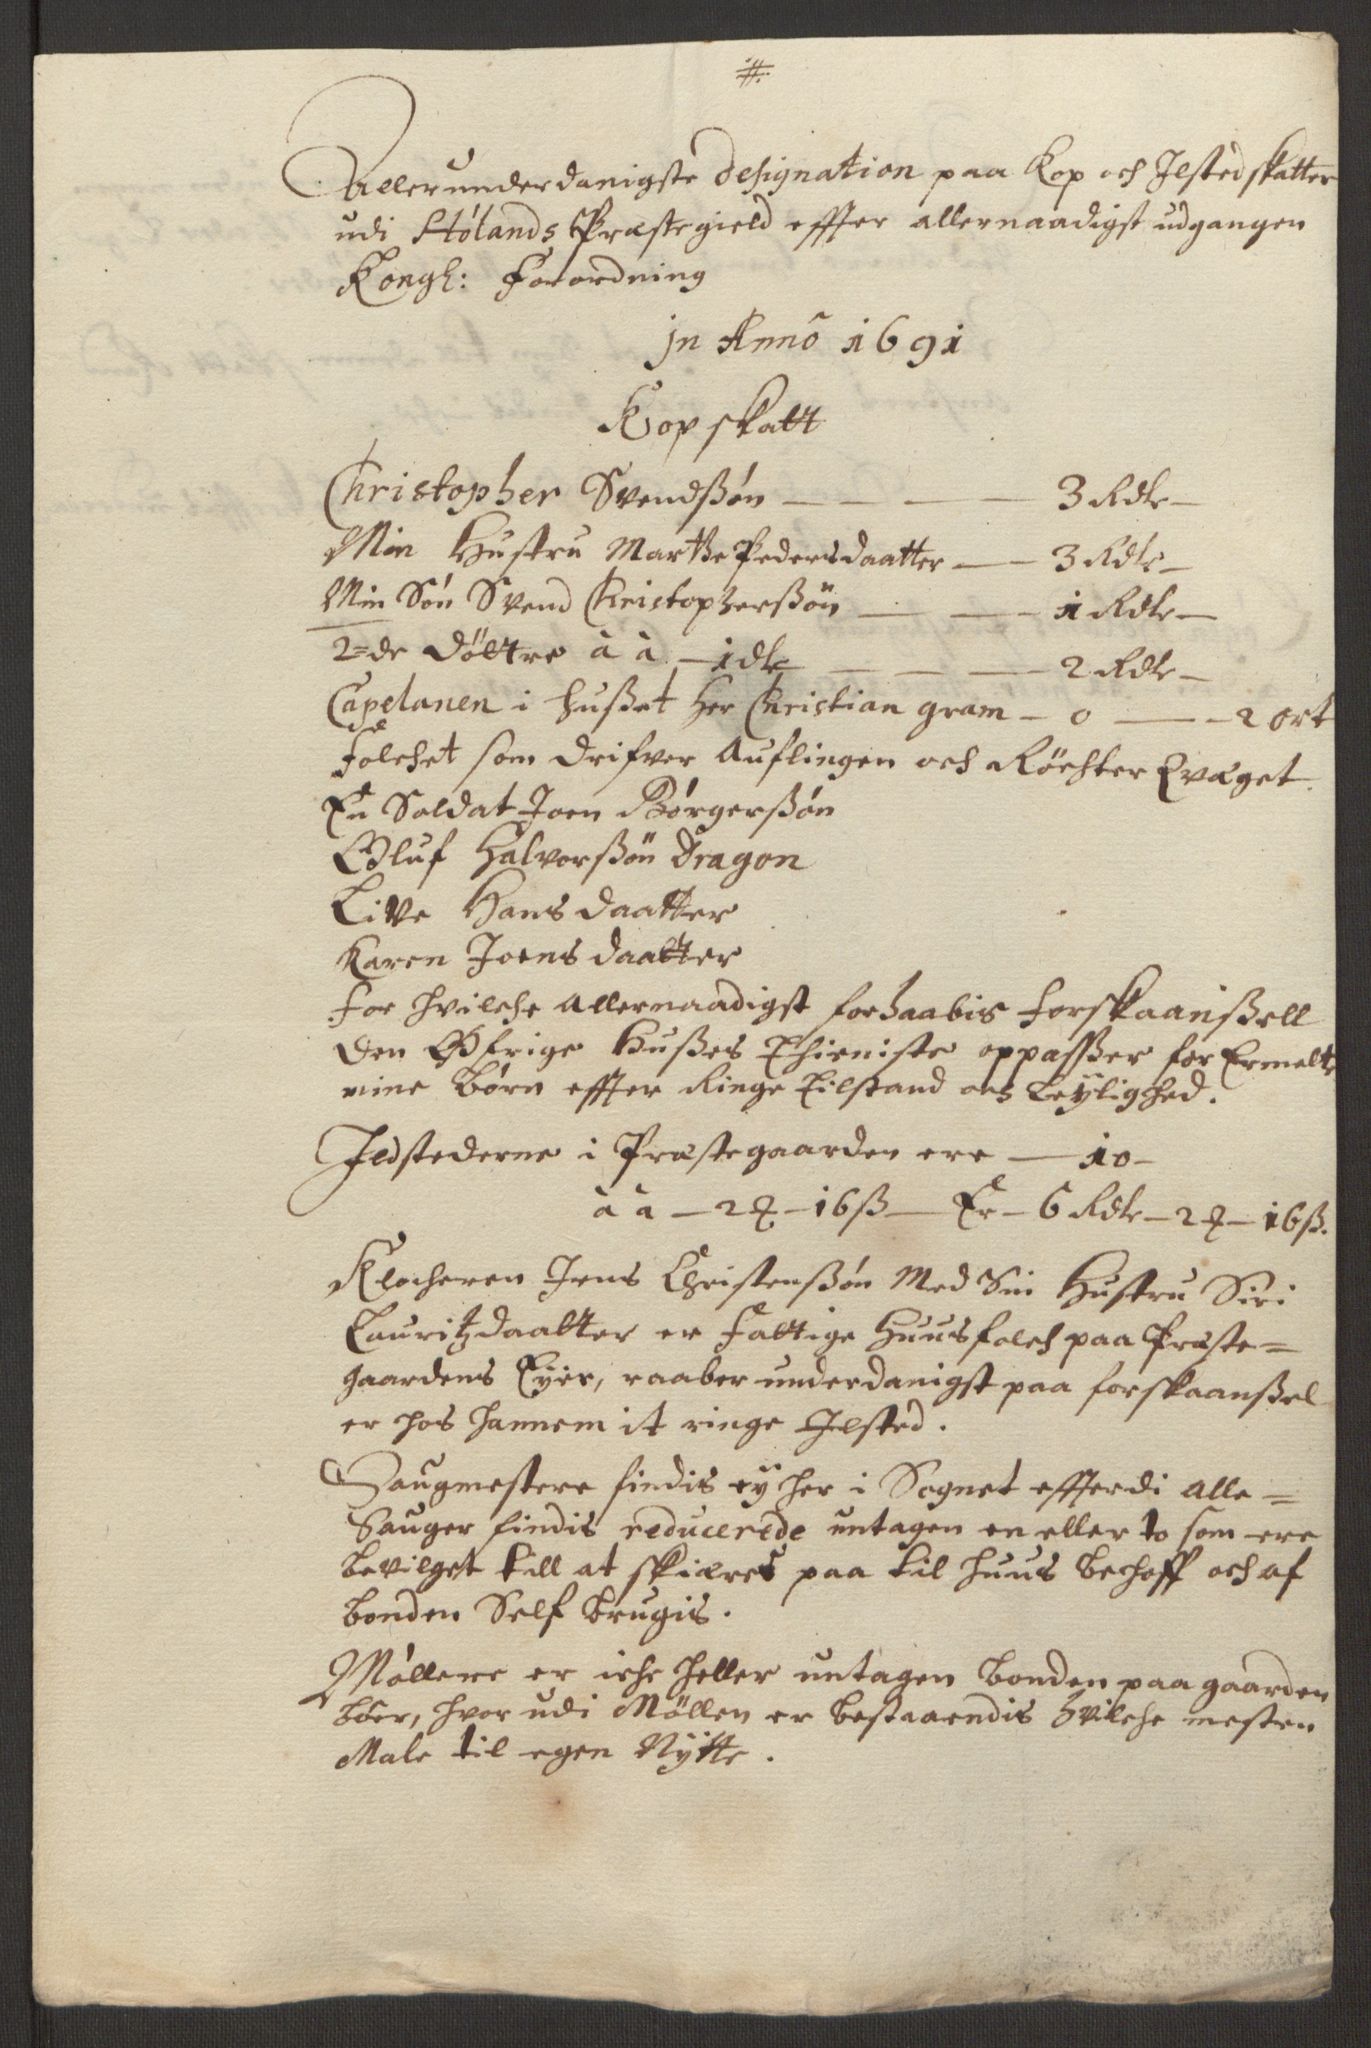 #
Allerunderdanigste designation paa Kop och Ilsted skatter
udi Hølands Præstegield effter allernaadigst udgangen
Kongl: Forordning
jn Anno 1691
Kop skatt
Christopher Svendßøn — — — 3 Rdlr —
Min Hustru Marthe Pedersdaatter — — 3 Rdlr —
Min Søn Svend Christopherßøn — — — 1 Rdlr —
2=de døttre à à — 1 dlr — — — 2 Rdlr —
Capelanen i hußet Her Christian gram — 0 — — 2 ort
Folchet som drifver Auflingen och Røchter Qvæget
En Soldat Joen Børgerßøn
Oluf Halvorßøn Dragon
Live Hans daatter
Karen Joens daatter
For hvilche allernaadigst forhaabis forskaanißell
den Øfrige Hußes Thieniste oppaßer for Ermelte
mine børn effter Ringe Tilstand och Leyligghed.
Ildstederne i Præstegaarden ere — 10 —
à à — 2 — 16 ß — Er — 6 Rdlr — 2 — 16 ß.
Klocheren Jens Christenßøn Med Sin Hustru Siri
Lauritzdaatter er Fattige Huusfolch paa Præste=
gaardens Eyer, raaber underdanigst paa forskaanßel
er hos hannem it ringe Ilsted.
Saugmestere findis ey her i Sognet effterdi alle=
Sauger findis reducerede untagen en eller to som ere
bevilget till at skiæres paa til huus behoff och af
bonden Self brugis.
Møllere er iche heller untagen bonden paa gaarden
boer, hvor udi Møllen er bestaaendis hvilche mesten
Male til egen Nytte.